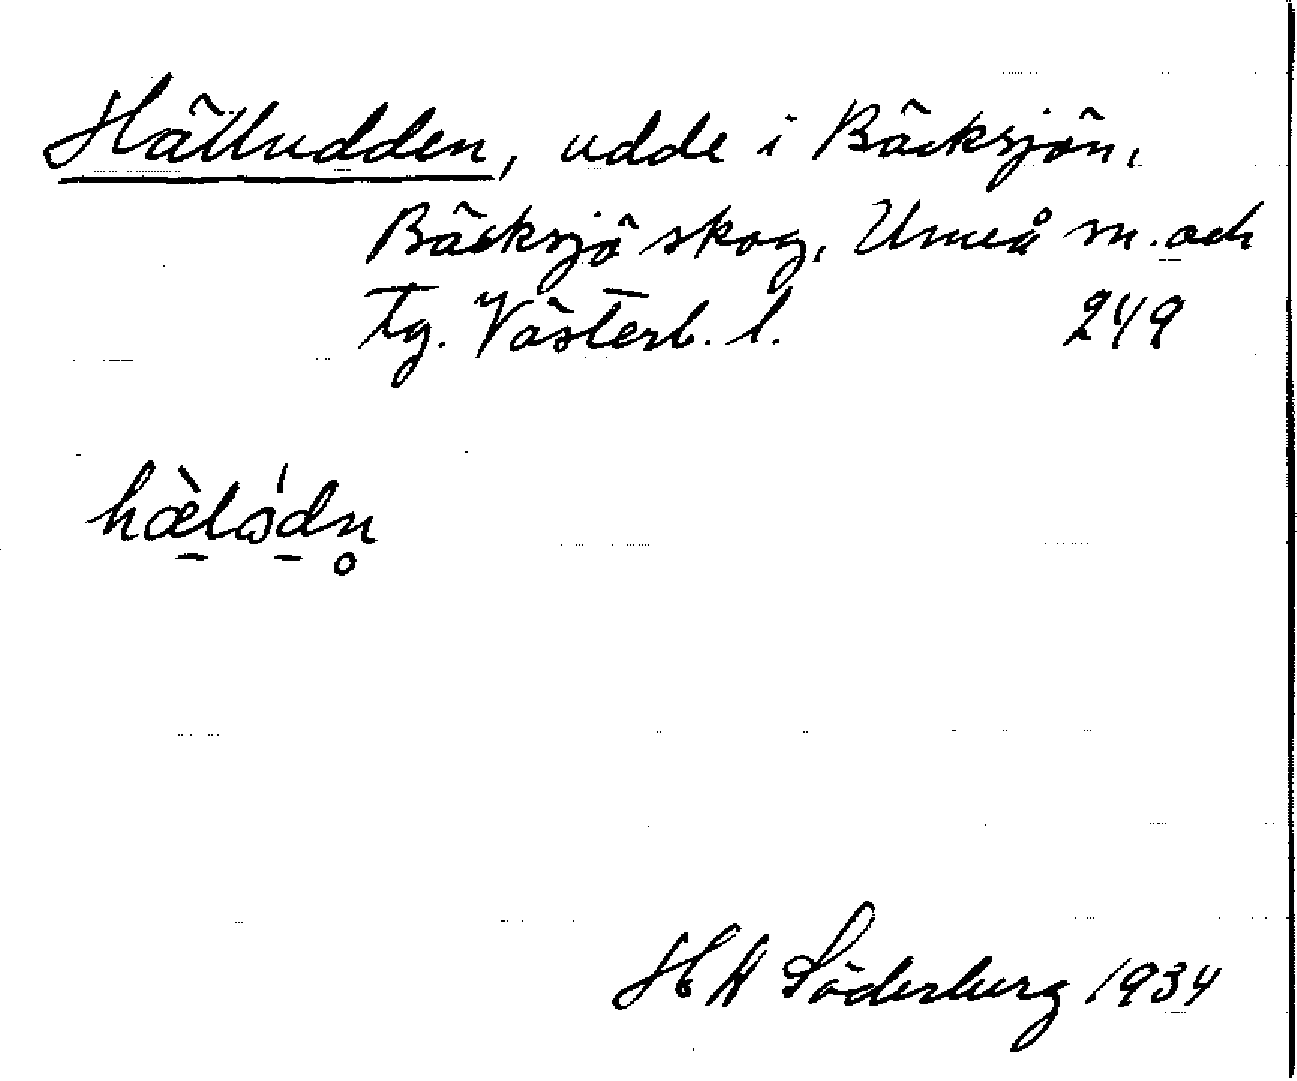 Hälludden, udde i Bäcksjön,
Bäcksjö skog, Umeå sn. och
tg. Västerb. l. 249
hæ̀lɷ́dn̥
H A Söderberg 1934